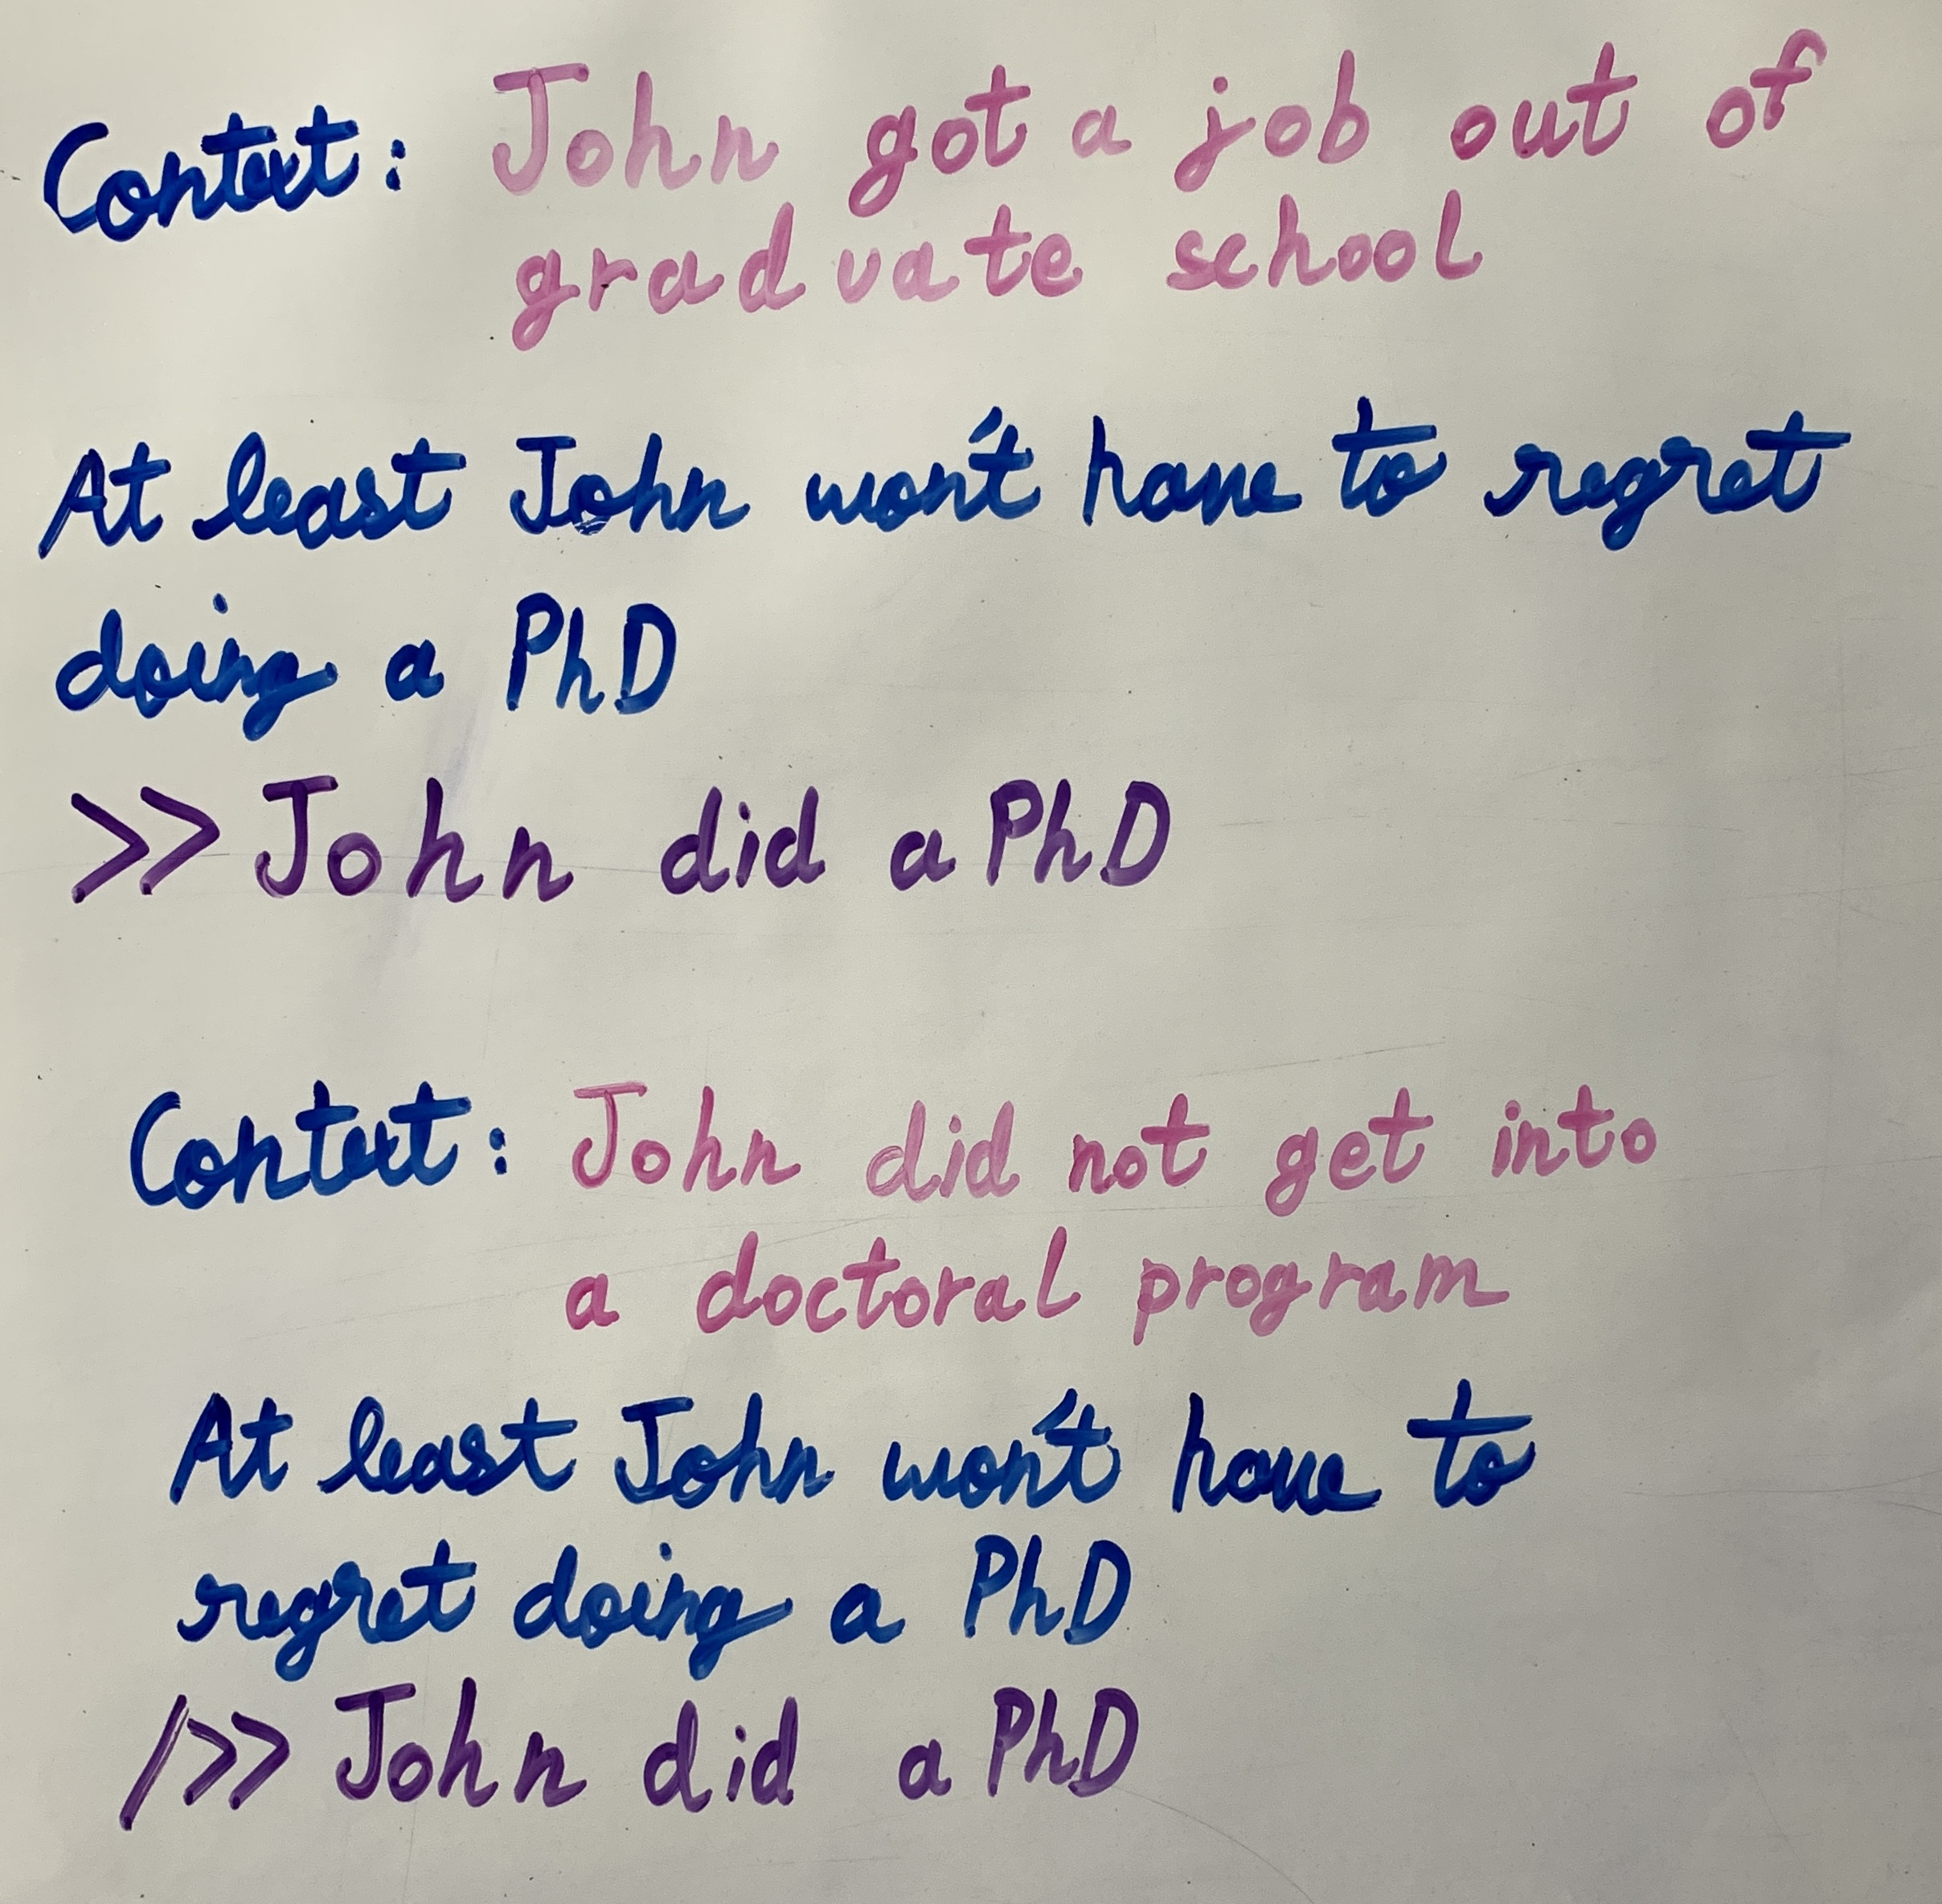 Context: John got a job out of
graduate school
At least John won't have to regret
doing a PhD
>> John did a PhD
Context: John did not get into
a doctoral program
At least John won't have to
regret doing a PhD
/>> John did a PhD